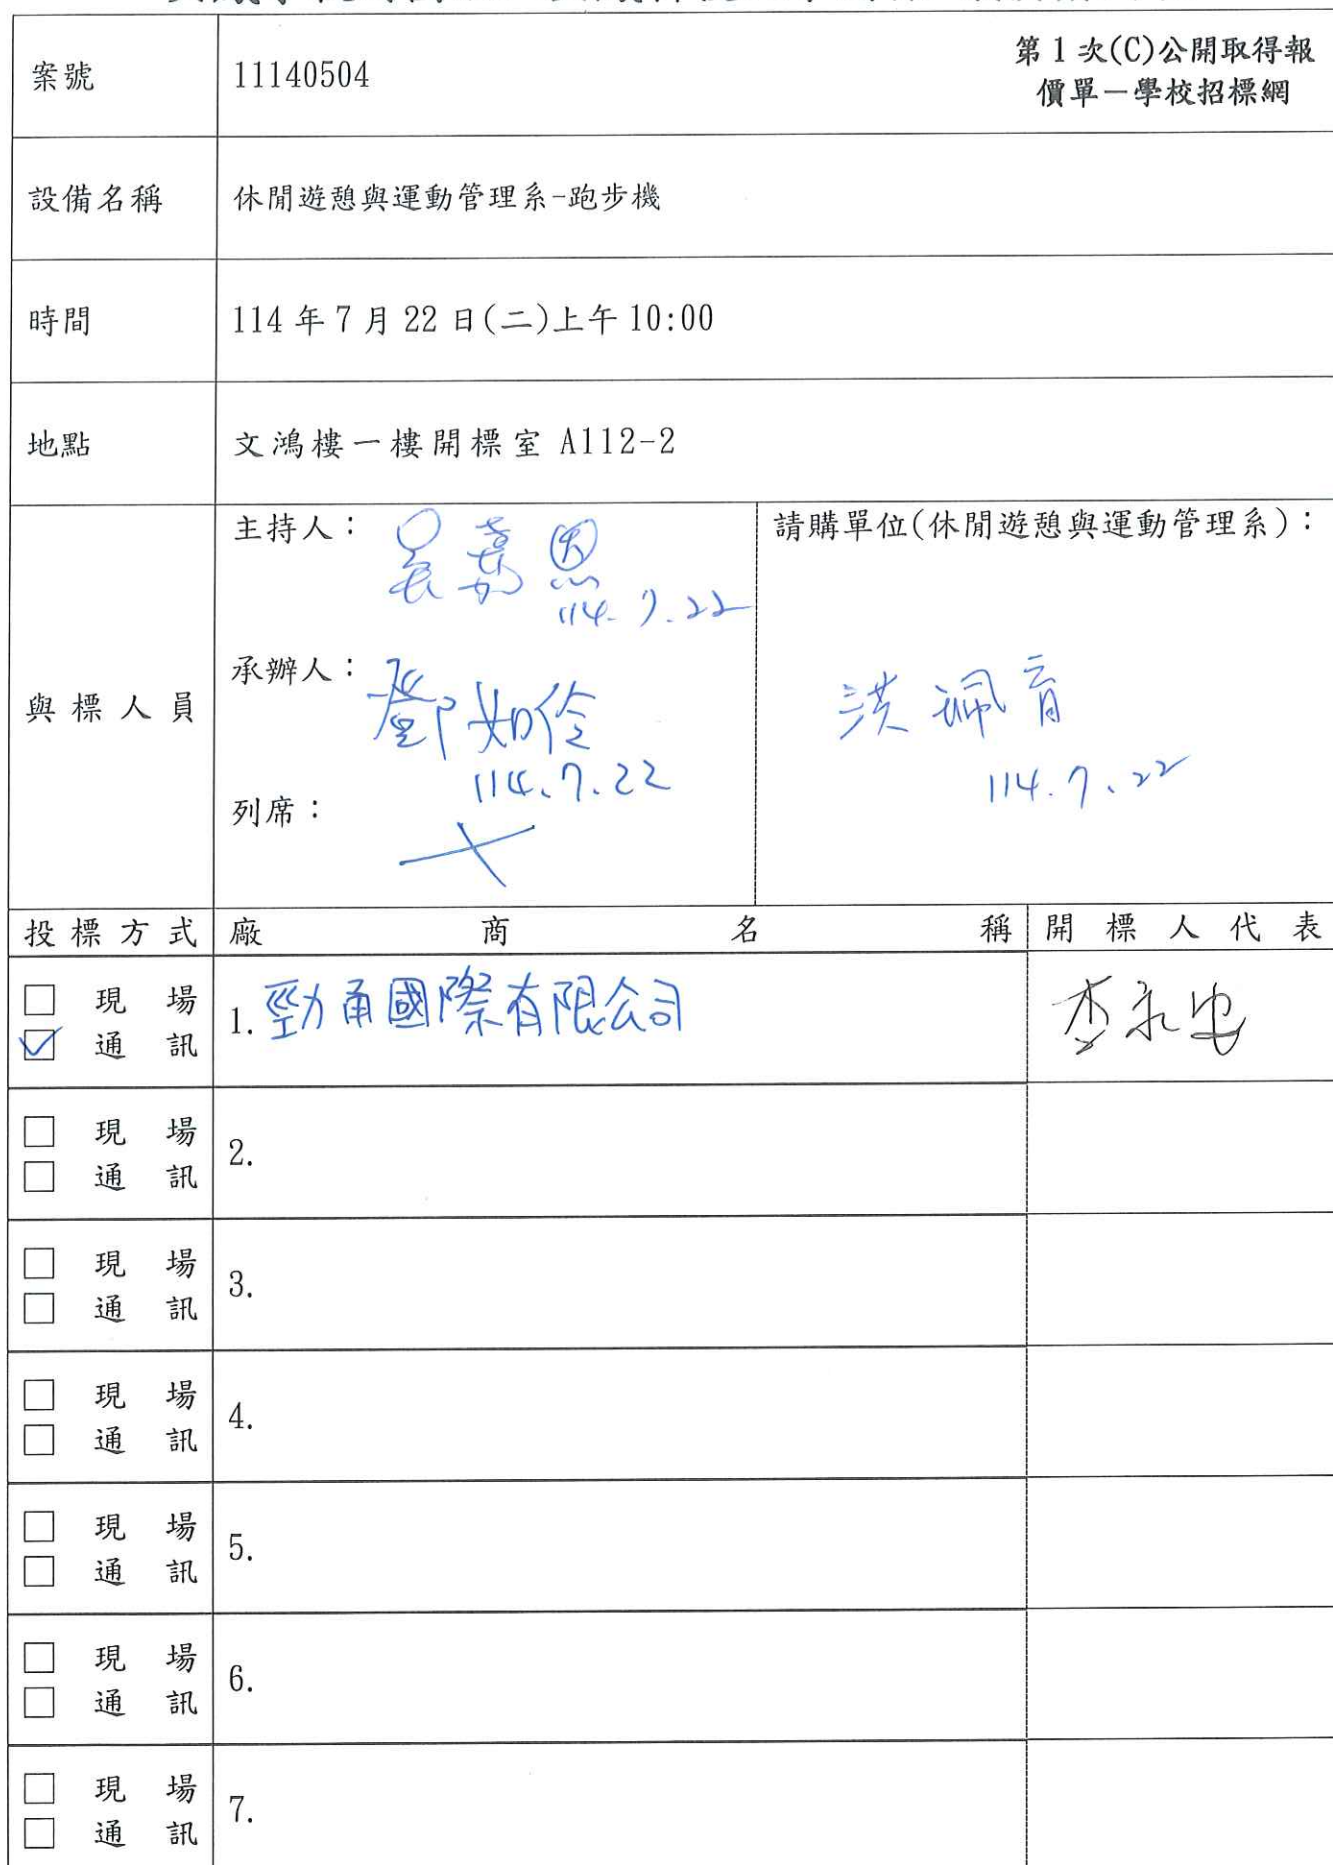 案號
11140504
第 1 次(C)公開取得報
價單－學校招標網
設備名稱
休閒遊憩與運動管理系-跑步機
時間
114 年 7 月 22 日(二)上午 10:00
地點
文鴻樓一樓開標室 A112-2
與標人員
主持人：
吳嘉恩
114.7.22
承辦人：
鄧如伶
114.7.22
列席：
請購單位(休閒遊憩與運動管理系)：
洪珮育
114.7.22
投標方式 廠商名稱 開標人代表
□ 現場
☑ 通訊
1. 勁甬國際有限公司
□ 現場
□ 通訊
2.
□ 現場
□ 通訊
3.
□ 現場
□ 通訊
4.
□ 現場
□ 通訊
5.
□ 現場
□ 通訊
6.
□ 現場
□ 通訊
7.